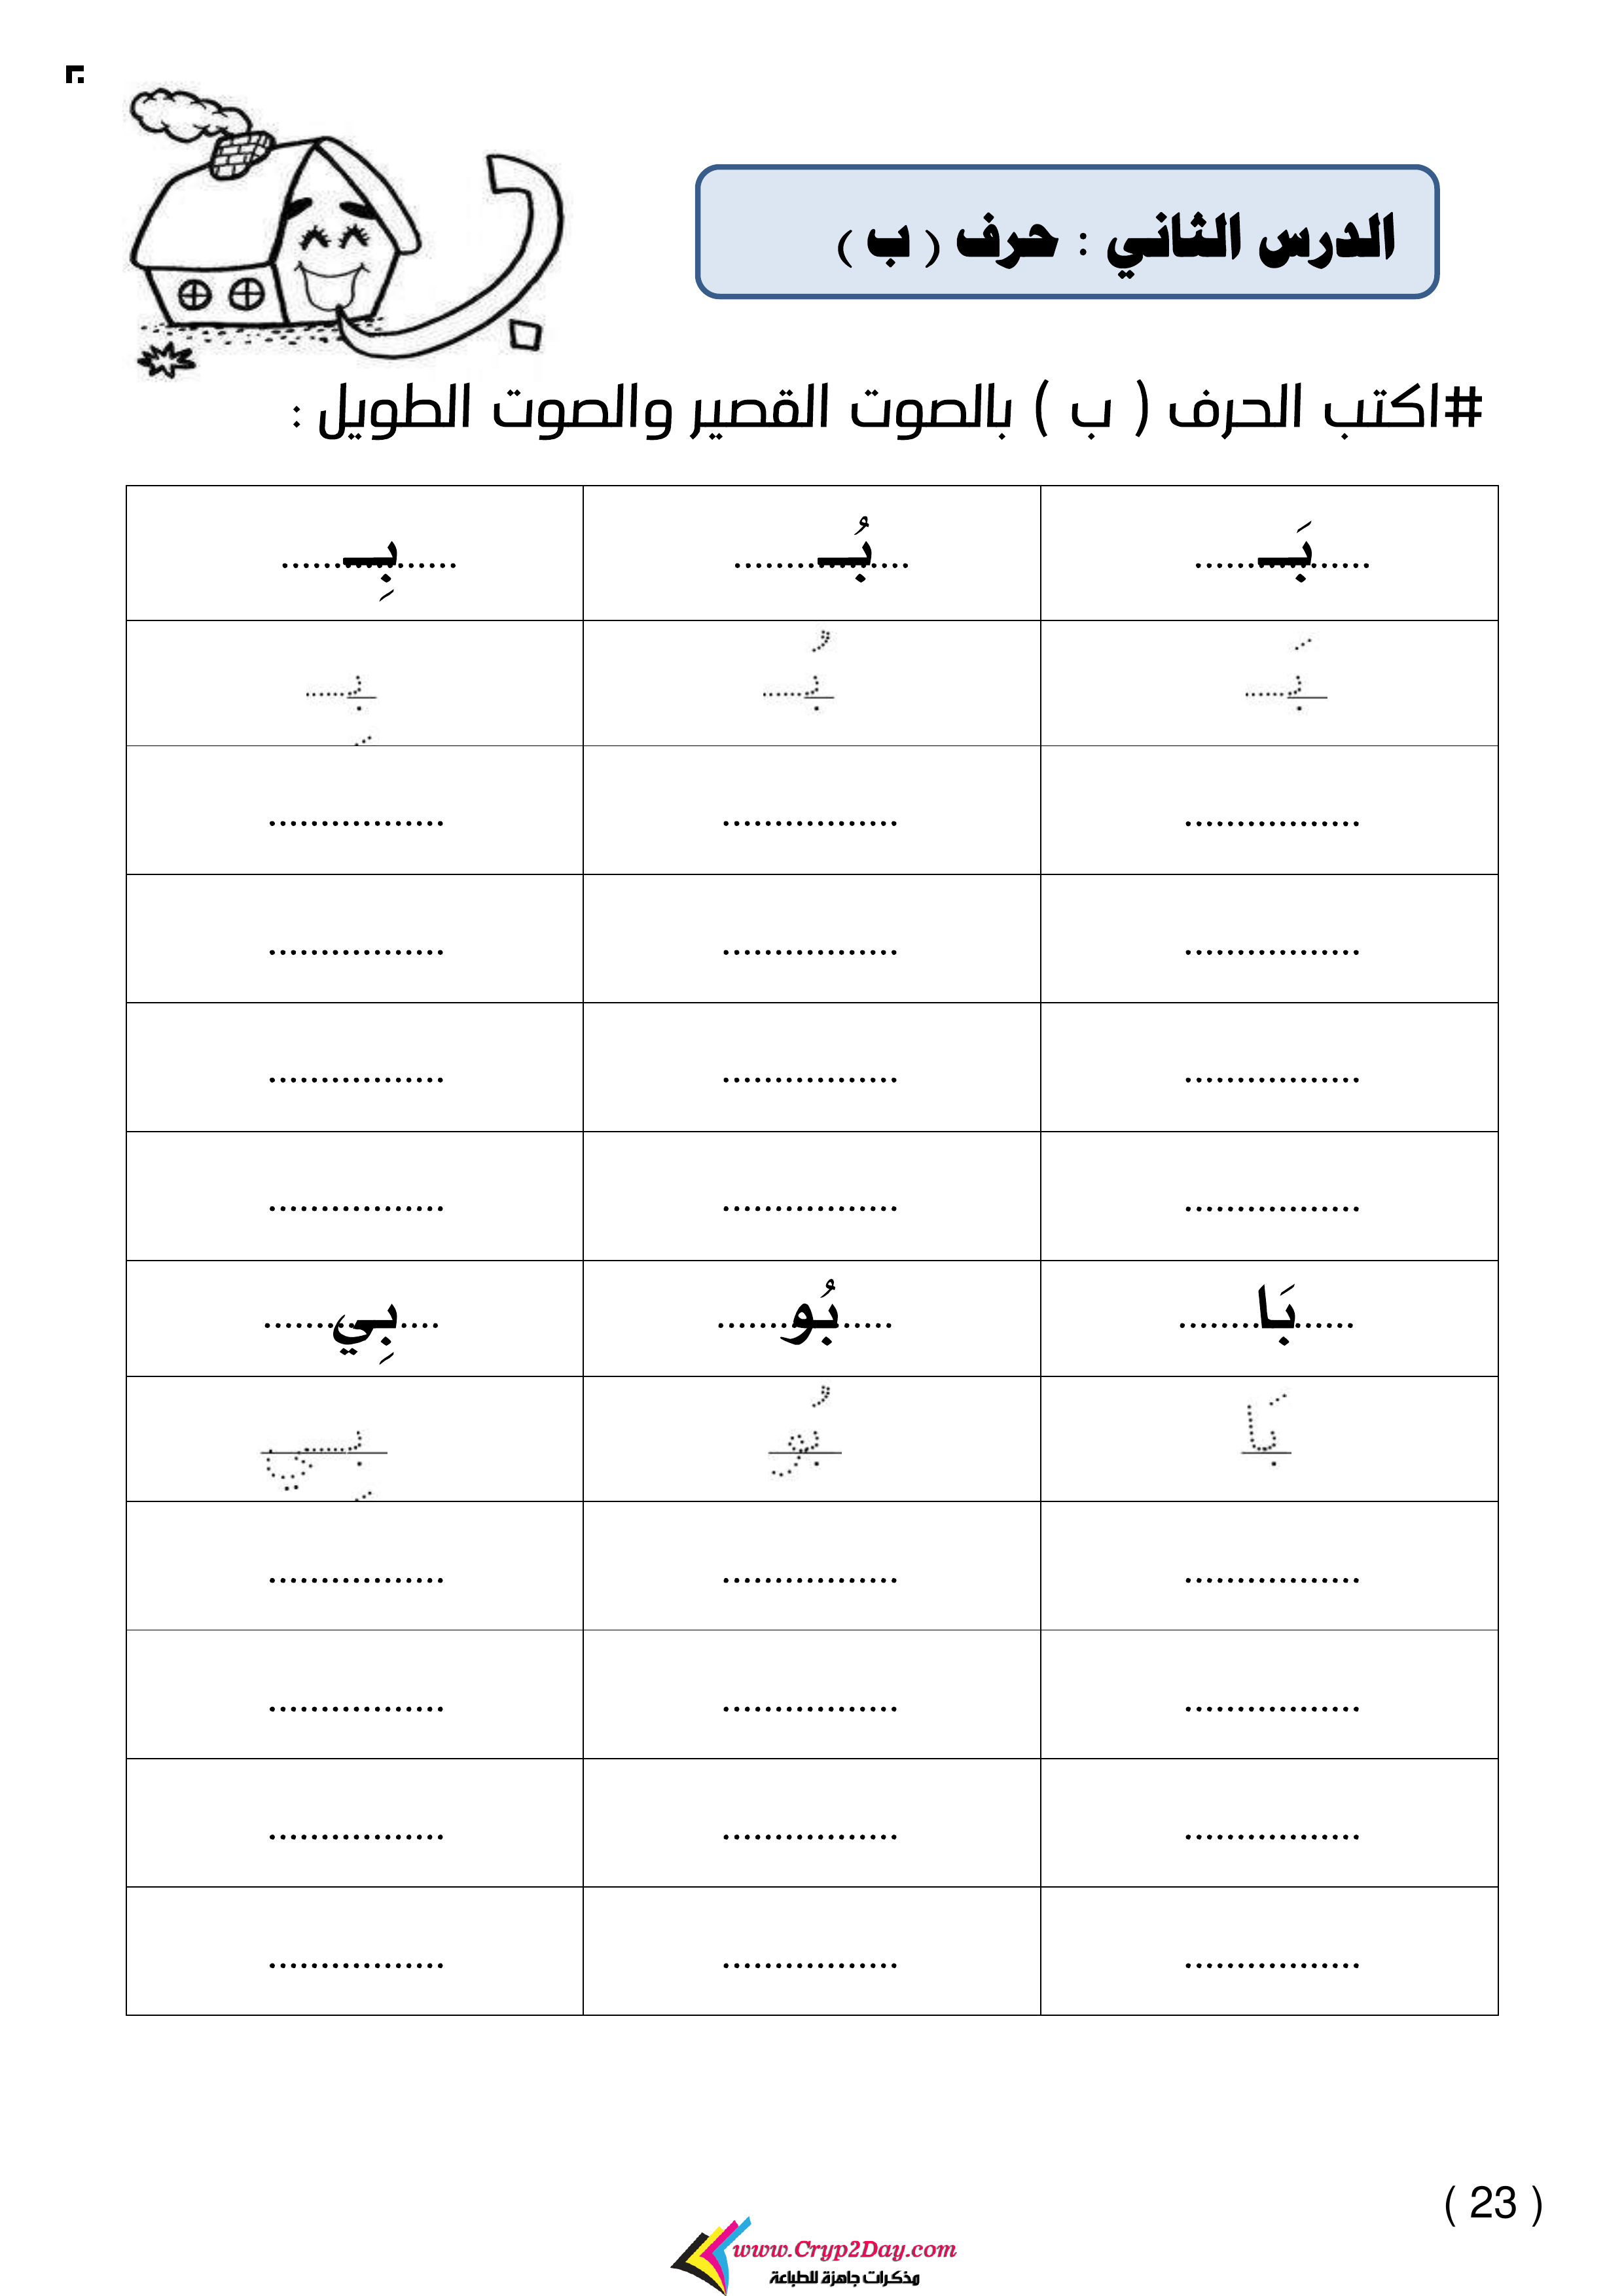 الدرس الثاني : حرف ( ب )
#اكتب الحرف ( ب ) بالصوت القصير والصوت الطويل :
بَـ بُـ بِـ
بَـ بُـ بِـ
بَا بُو بِي
بَا بُو بِي
( 23 )
www.Cryp2Day.com
مذكرات جاهزة للطباعة